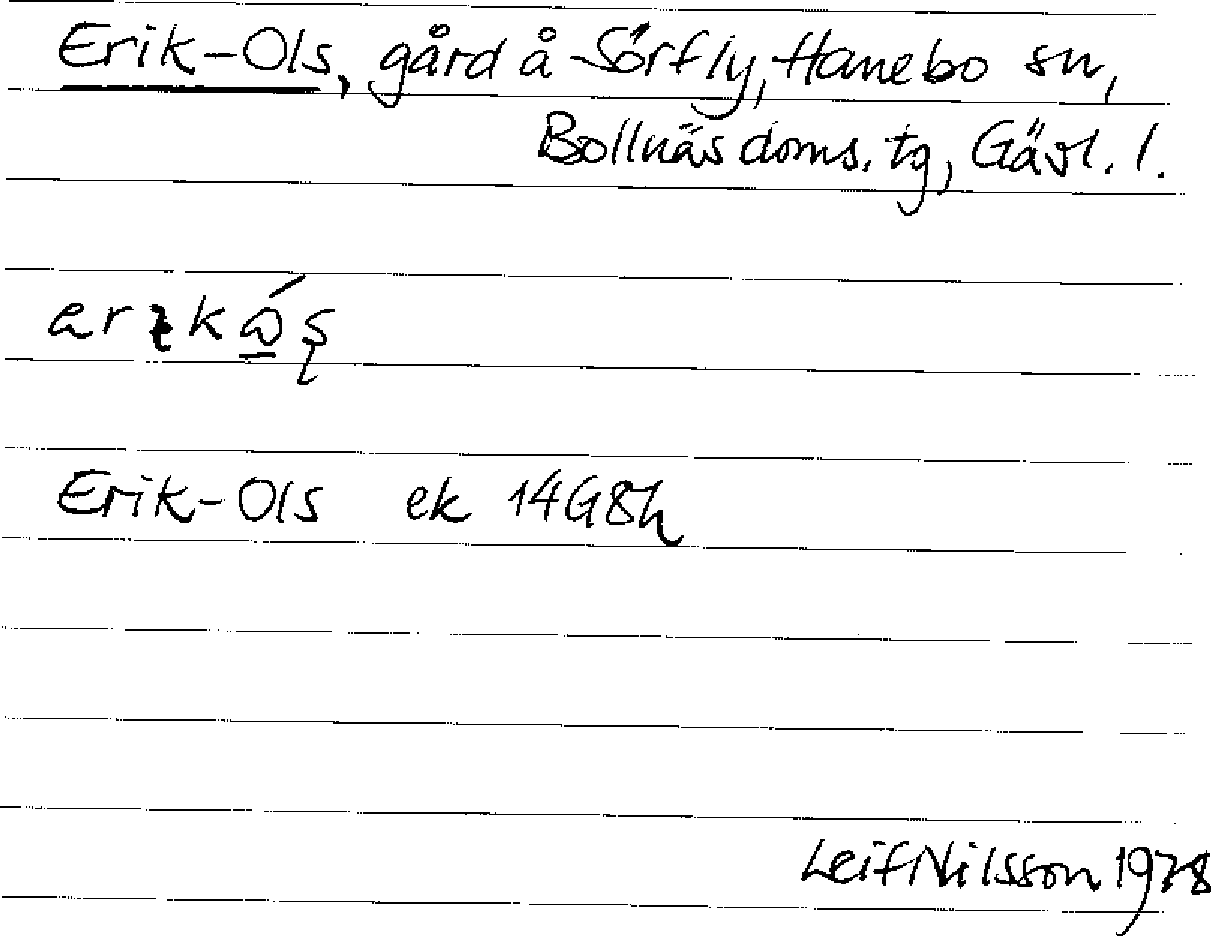 Erik-Ols, gård å Sörfly, Hanebo sn,
Bollnäs doms. tg, Gävl. l.
Erik-Ols ek 14G8h
Leif Nilsson 1978